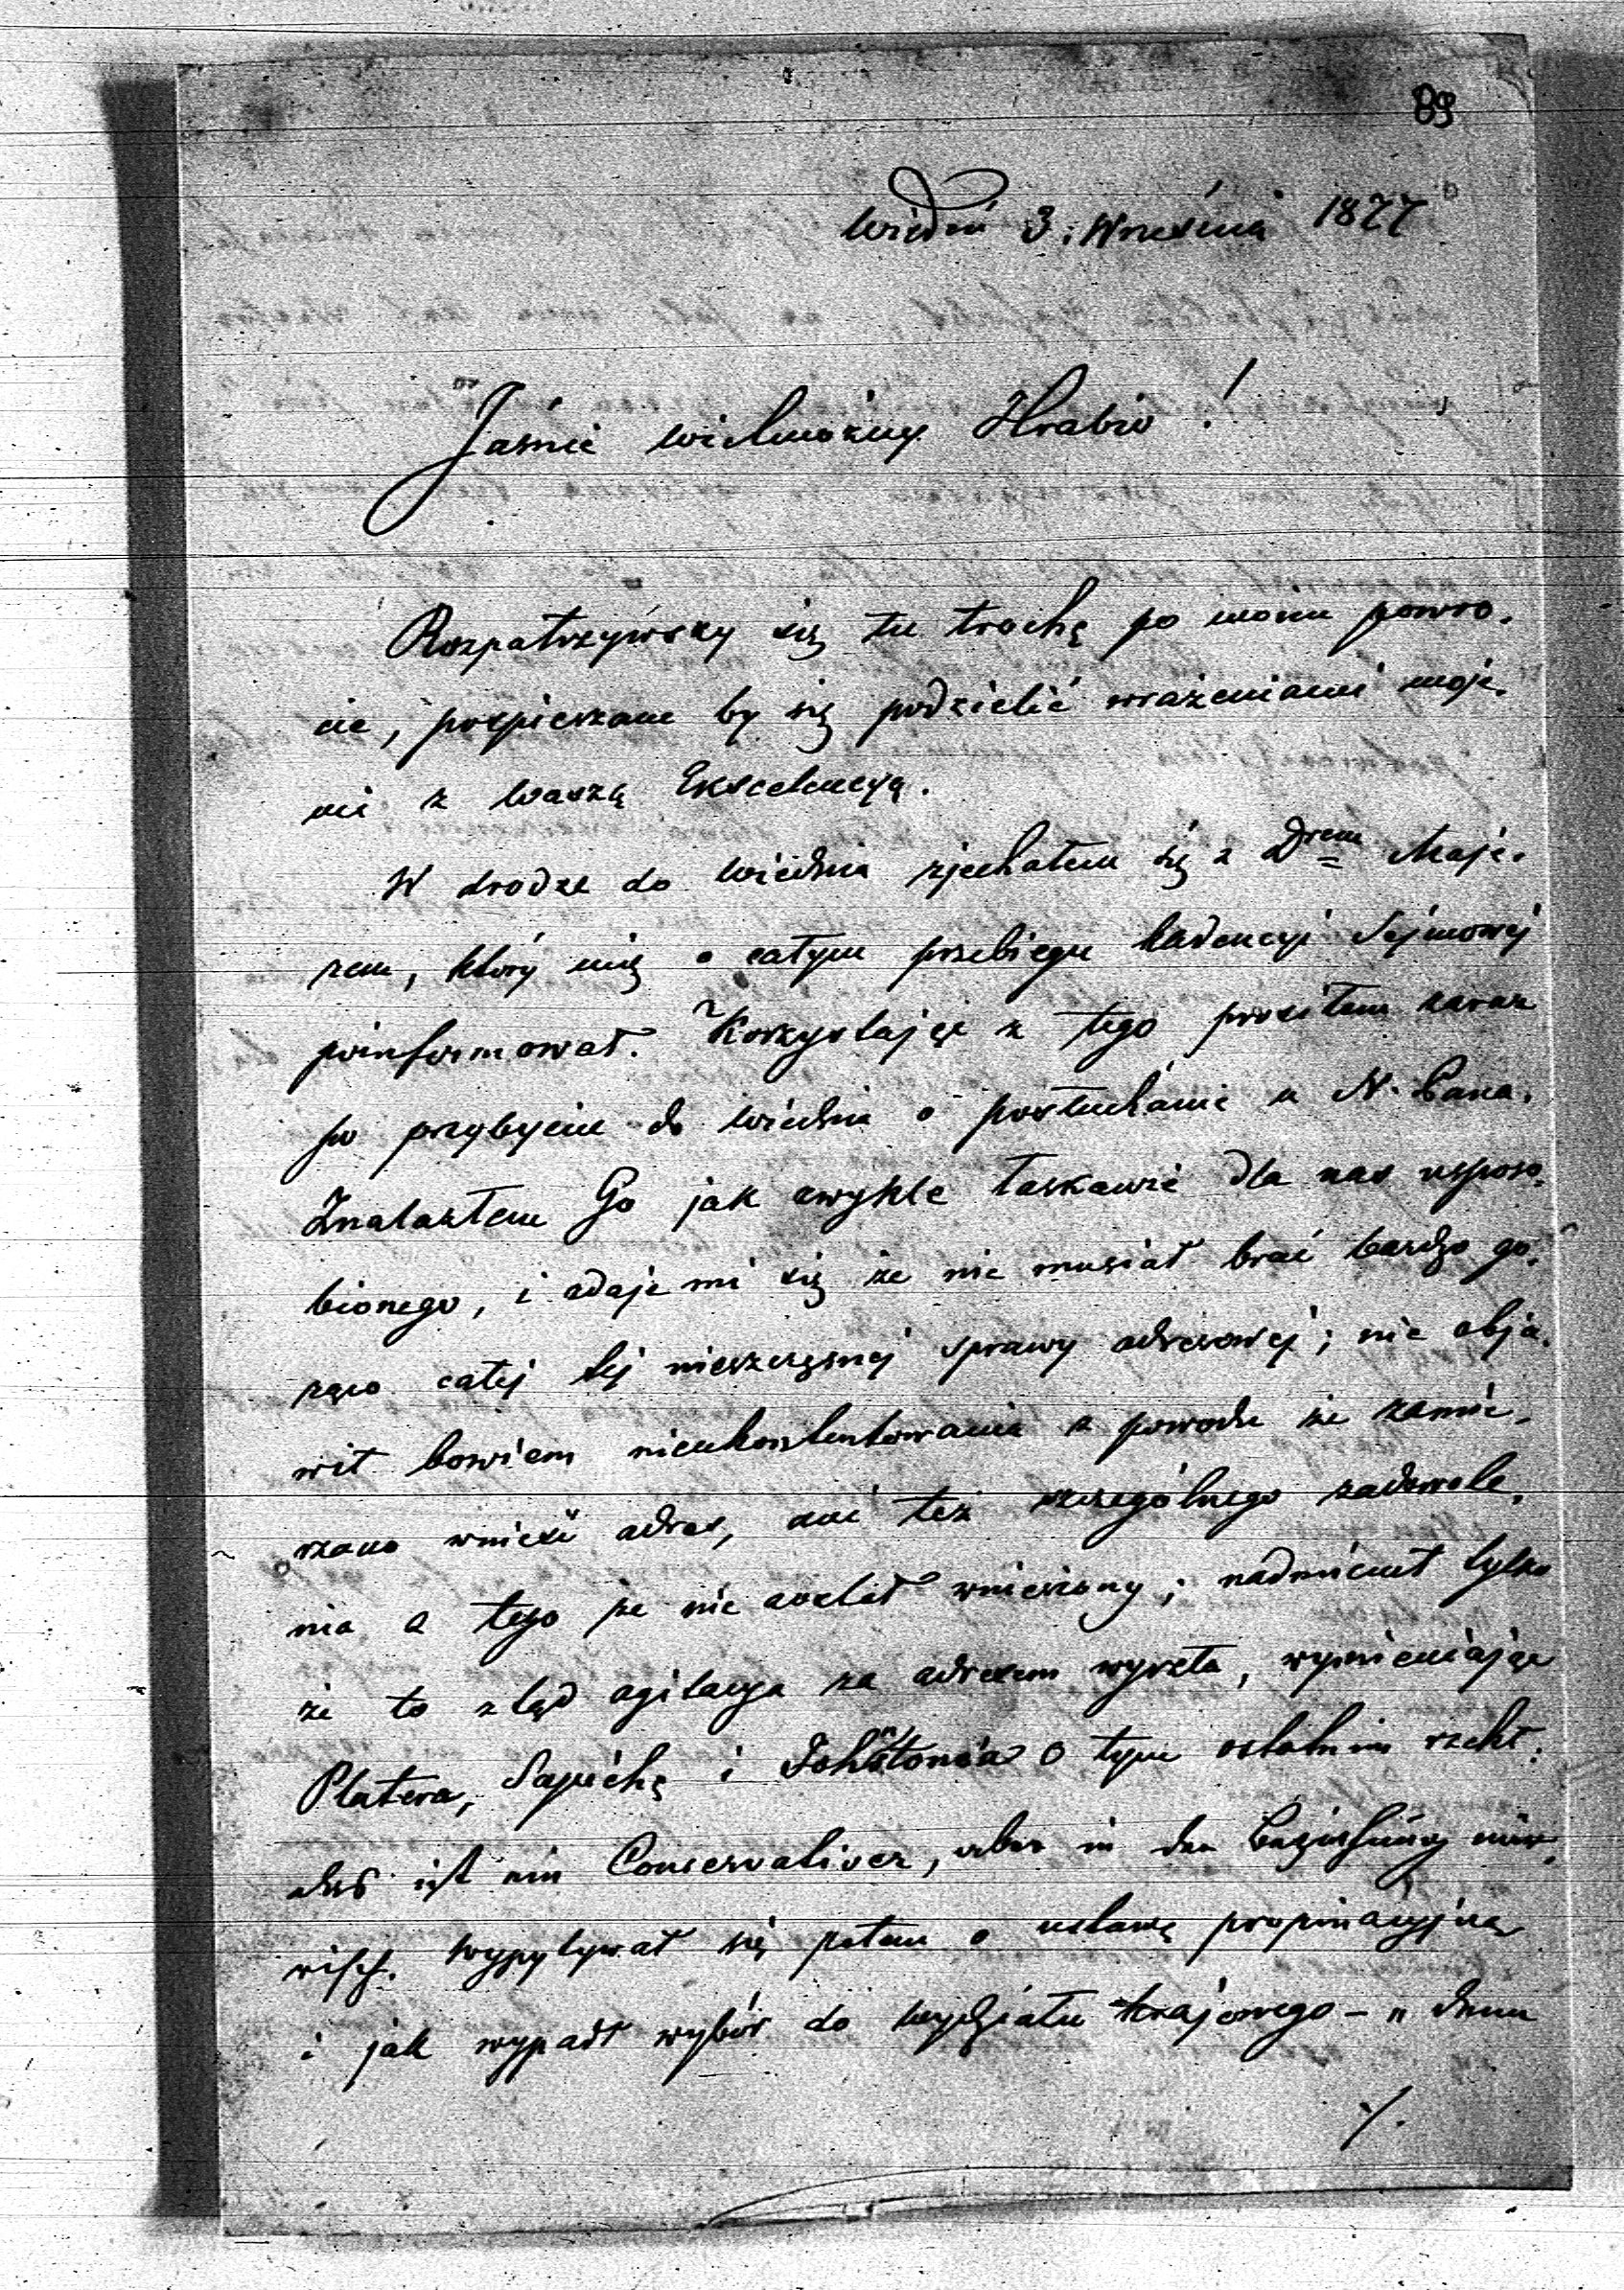 89
Wiedeń 3. Września 1877
Jaśnie Wielmożny Hrabio!
Rozpatrzywszy się tu trochę po moim powro-
cie, pospieszam by się podzielić wrażeniami moje-
mi z Waszą Ekscelencyą.
W drodze do Wiednia zjechałem się z Drem Maje-
rem, który mię o całym przebiegu kadencyi Sejmowej
poinformował. Korzystając z tego prosiłem zaraz
po przybyciu do Wiednia o posłuchanie u N. Pana.
Znalazłem Go jak zwykle łaskawie dla nas usposo-
bionego, i zdaje mi się że nie musiał brać bardzo go-
rąco całej tej nieszczęsnej sprawy adresowej; nie obja-
wił bowiem nieukontentowania z powodu że zamie-
rzano wnieść adres, ani też szczególnego zadowole-
nia z tego że nie został wniesiony; nadmienił tylko
że to ztąd agitacya za adresem wyszła, wymieniając
Platera, Sapiehę i Johnstona o tym ostatnim rzekł:
das ist ein Conservativer, aber in der Beziehung
wypytywał się potem o ustawę propinacyjną
i jak wypadł wybór do wydziału krajowego – "denn
./.